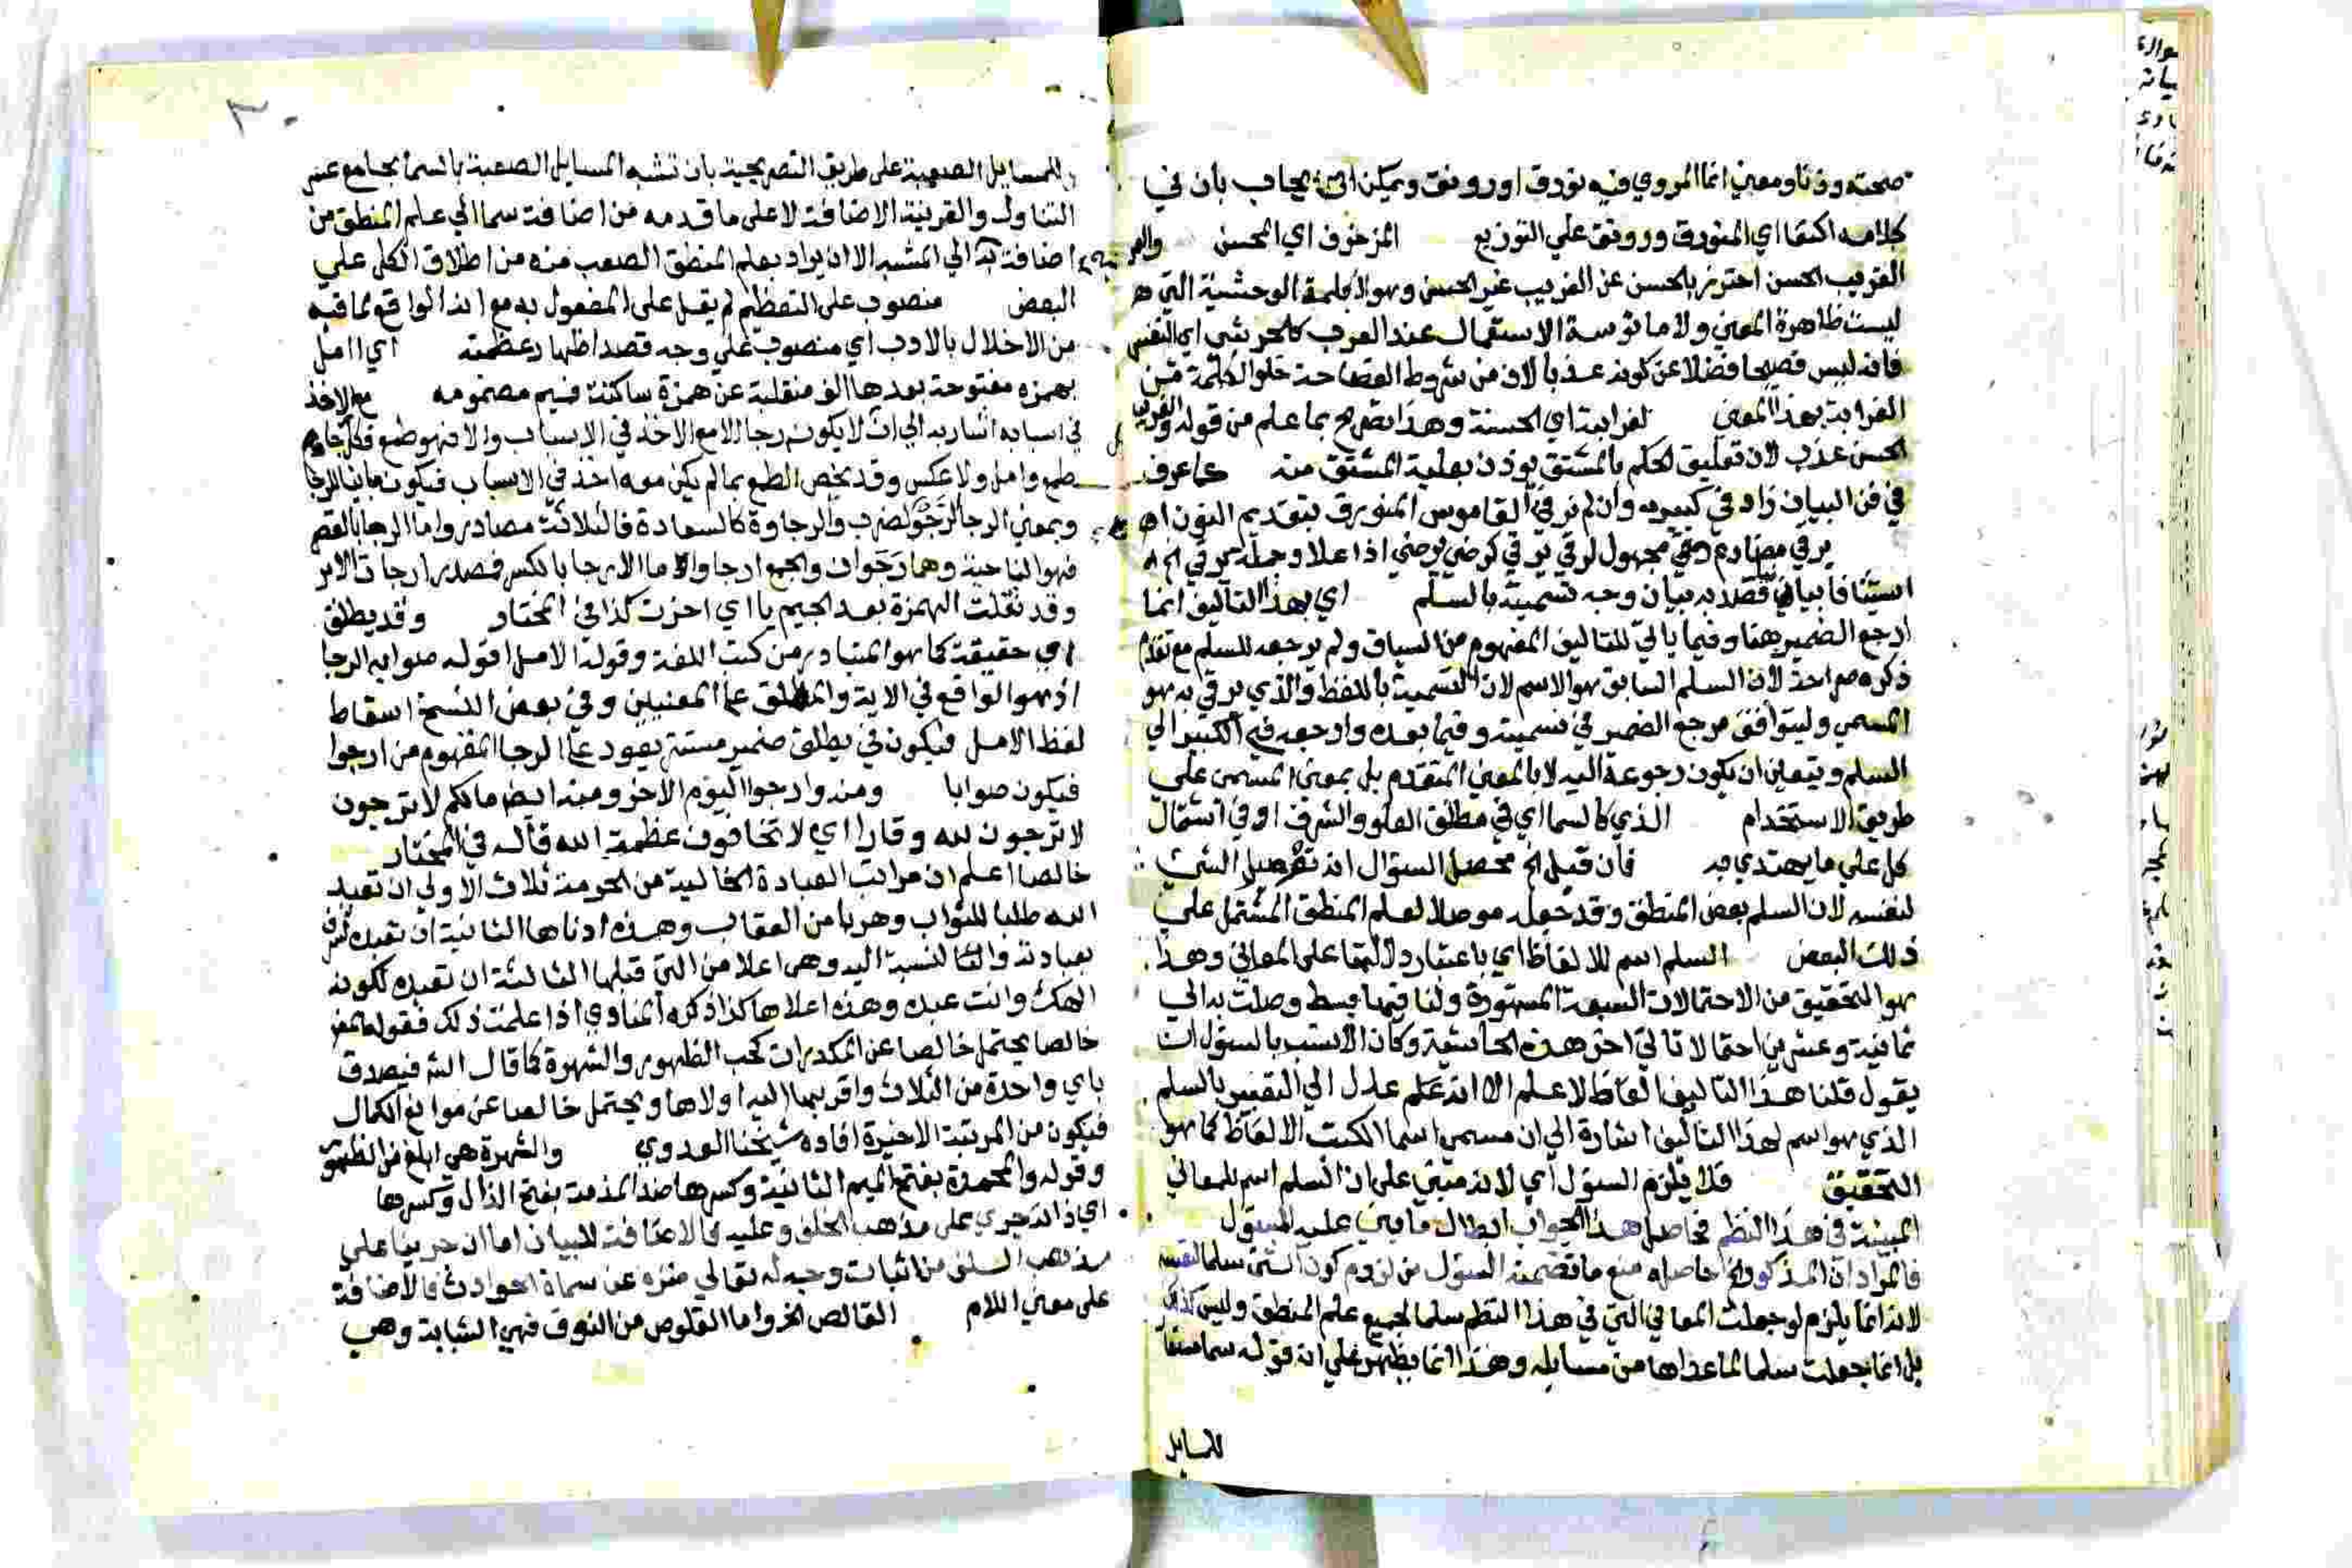 صحته وزنا ومعنى انما المروي فيه تورق او رونق ويمكن ان يجاب بان في
كلامه اكتفا اي المنورق ورونق علي التوزيع المزخرف اي المحسن والغر
الغريب الحسن احترز بالحسن عن الغريب غير الحسن وهو الكلمة الوحشية التي هي
ليست ظاهرة المعنى ولا مانوسة الاستعمال عند العرب كالجرشي اي النفس
فانه ليس فصيحا فضلا عن كونه عذبا لان من شروط الفصاحة خلو الكلمة من
الغرابة بهذا المعنى لغرابته اي الحسنة وهذا تصريح بما علم من قوله والغريب
الحسن عذب لان تعليق الحكم بالمشتق يوذن بعلية المشتق منه كما عرف
في فن البيان زاد في كبيره وان لم نر في القاموس المنورق بتقديم النون اه
يرقى مضارع مجهول لرقي يرقى كرضي يرضى اذا علا وجملة يرقى الخ
استينافا بيانيا قصد به بيان وجه تسميته بالسلم اي بهذا التاليف انما
ارجع الضمير هنا وفيما ياتي للتاليف المفهوم من السياق ولم يرجعه للسلم مع تقدم
ذكره صراحة لان السلم السابق هو الاسم لان التسمية باللفظ والذي يرقى به هو
المسمى وليتوافق مرجع الضمير في تسميته وفيما بعده وارجعه في الكبير الي
السلم ويتعين ان يكون رجوعه اليه لا بالمعنى المتقدم بل بمعنى المسمى على
طريق الاستخدام الذي كالسما اي في مطلق العلو والشرف او في اشتمال
كل علي ما يهتدي به فان قيل الخ محصل السؤال انه تحصيل الشي
لنفسه لان السلم بعض المنطق وقد جعله موصلا لعلم المنطق المشتمل علي
ذلك البعض السلم اسم للالفاظ اي باعتبار دلالتها على المعاني وهذا
هو التحقيق من الاحتمالات السبعة المشهورة ولنا فيها بسط وصلت به الي
ثمانية وعشرين احتمالا تاتي اخر هذه الحاشية وكان الانسب بالسؤل ان
يقول قلنا هذا التاليف الفاظ لا علم الا انه علم عدل الي التعبير بالسلم
الذي هو اسم لهذا التاليف اشارة الي ان مسمى اسما الكتب الالفاظ كما هو
التحقيق فلا يلزم السؤل اي لانه مبني على ان السلم اسم للمعاني
المبينة في هذا النظم فحاصل هذا الجواب ابطال ما بني عليه السؤل
فالمراد ان المذكور الخ حاصله منع ما تضمنه السؤل من لزوم كون الشي سلما لنفسه
لانه انما يلزم لو جعلت المعاني التي في هذا النظم سلما لجميع علم المنطق وليس كذلك
بل انما جعلت سلما لما عداها من مسايله وهذا انما يظهر علي ان قوله سما
للمسايل
للمسايل الصعبة على طريق التصريحية بان تشبه المسايل الصعبة بالسما بجامع عسر
التناول والقرينة الاضافة لا على ما قدمه من اضافة سما الي علم المنطق من
اضافة المشبه به الي المشبه الا ان يراد بعلم المنطق الصعب منه من اطلاق الكل على
البعض منصوب على التعظيم لم يقل على المفعول به مع انه الواقع لما فيه
من الاخلال بالادب اي منصوب علي وجه قصد اظهار عظمته اي اامل
بهمزه مفتوحة بعدها الف منقلبة عن همزة ساكنة فميم مضمومه مع الاخذ
في اسبابه اشار به الي ان لا يكون رجا الا مع الاخذ في الاسباب والا فهو طمع فكل رجا
طمع وامل ولا عكس وقد يخص الطمع بما لم يكن معه اخذ في الاسباب فيكون مباينا للرجا
وبمعنى الرجا الرجو كضرب والرجاوة كالسعادة فالثلاثة مصادر واما الرجا بالقصر
فهو الناحية وهما رجوان والجمع ارجا واما الارجا بالكسر فمصدر ارجات الامر
وقد نقلت الهمزة بعد الجيم يا اي اخرت كذا في المختار وقد يطلق
اي حقيقة كما هو المتبادر من كتب اللغة وقوله الامل اقوله صوابه الرجا
اذ هو الواقع في الاية والمطلق علي المعنيين وفي بعض النسخ اسقاط
لفظ الامل فيكون في يطلق ضمير مستتر يعود علي الرجا المفهوم من ارجوا
فيكون صوابا ومنه وارجوا اليوم الاخر ومنه ايضا مالكم لا ترجون
لا ترجون لله وقارا اي لا تخافون عظمة الله قاله في المختار
خالصا اعلم ان مراتب العبادة الخالية من الحرمة ثلاث الاولى ان تعبد
الله طلبا للثواب وهربا من العقاب وهذه ادناها الثانية ان تعبده لتشرف
بعبادته والنسبة اليه وهي اعلا من التي قبلها الثالثة ان تعبده لكونه
الهك وانت عبده وهذه اعلاها كذا ذكره المناوي اذا علمت ذلك فقوله
خالصا يحتمل خالصا عن المكدرات كحب الظهور والشهرة كما قال الش فيصدق
باي واحدة من الثلاث واقربها اليه اولاها ويحتمل خالصا عن موانع الكمال
فيكون من المرتبة الاخيرة افاده شيخنا العدوي والشهرة هي ابلغ من الظهور
وقوله والمحمدة بفتح الميم الثانية وكسرها ضد المذمة بفتح الذال وكسرها
اي ذاته جري على مذهب الخلف وعليه فالاضافة للبيان اما ان جرينا علي
مذهب السلف من اثبات وجه له تعالي منزه عن سماة الحوادث فالاضافة
على معنى اللام القالص الخ واما القلوص من النوق فهي الشابة وهي